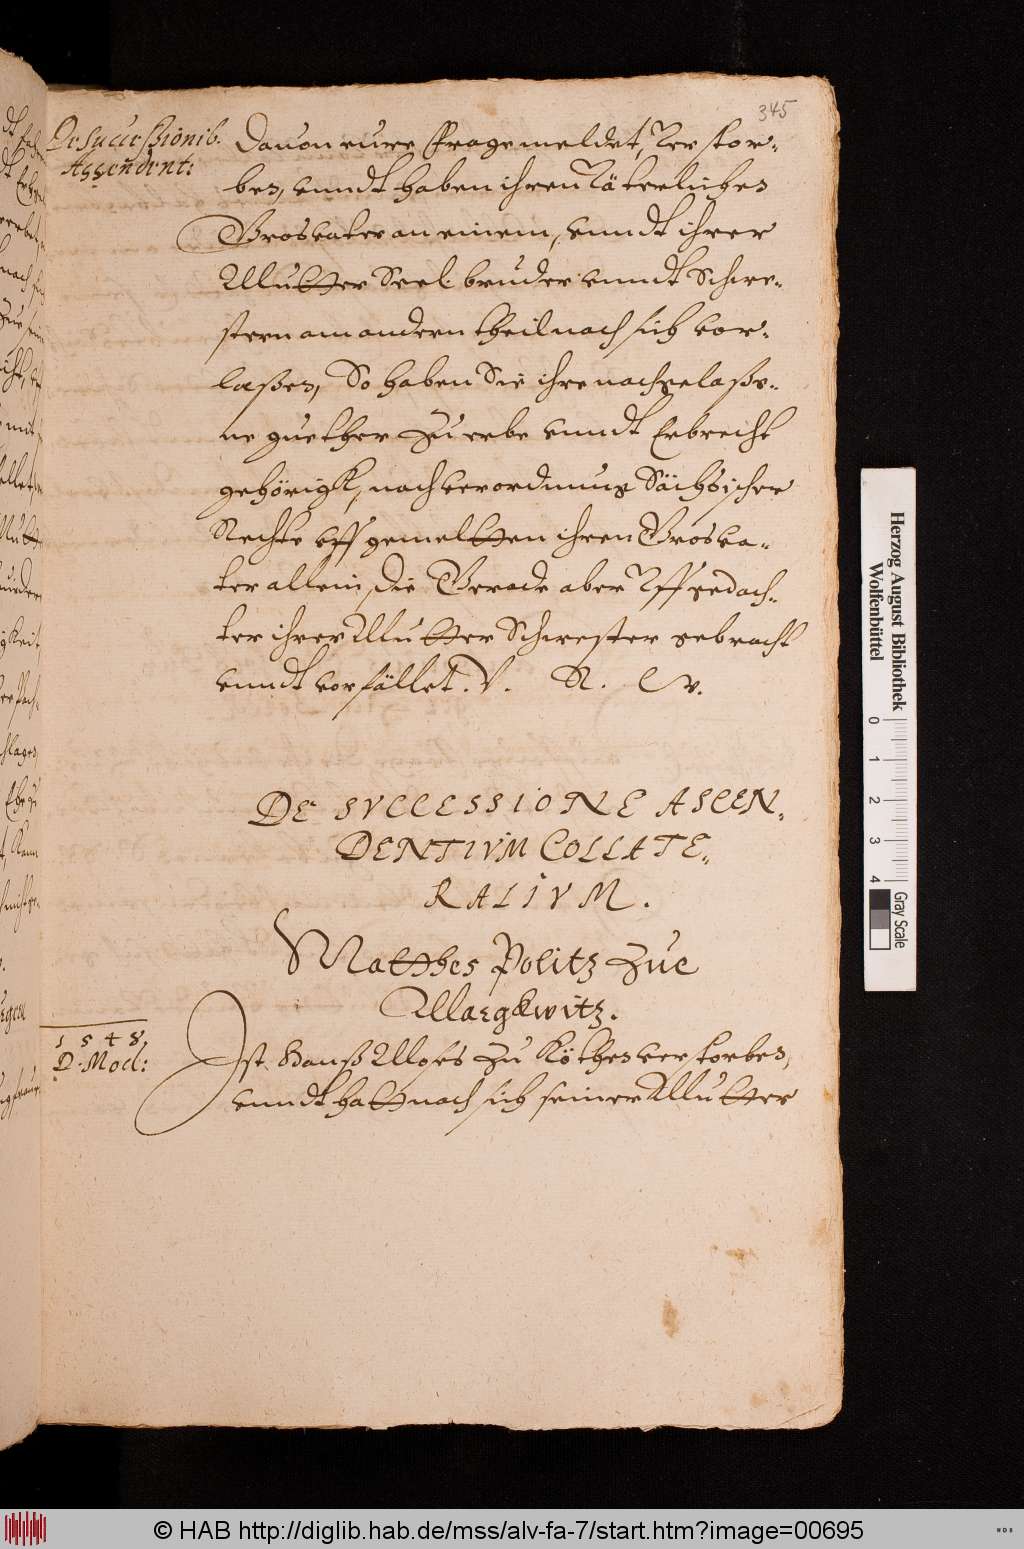 345
De Sucressionib.
Assendent:
Dauon eure Frage meldet, Verstor-
ben, vnndt haben ihren Väterlichen
Grosvater an einem, vnndt ihrer
Mutter Seel: bruder vnndt Schwe-
stern am andern theil nach sich vor-
laßen, So haben Sie ihre nachgelaße-
ne guether zu erbe vnndt Erbrecht
gehörigk, nach verordnung Sächsischer
Rechte vff gemelten ihren Grosva-
ter allein, die Gerade aber Vff gedach-
ter ihrer Mutter Schwester gebracht
vnndt vorfället. V. R. W.
DE SVCCESSIONE ASCEN-
DENTIVM COLLATE-
RALIVM.
Matthes Politz zue
Margkwitz.
1548
D. Mod:
Ist Hanß Moses zu Köthen verstorben,
vnndt hatt nach sich seiner Mutter
Herzog August Bibliothek
Wolfenbüttel
0 1 2 3 4
Gray Scale
© HAB http://diglib.hab.de/mss/alv-fa-7/start.htm?image=00695